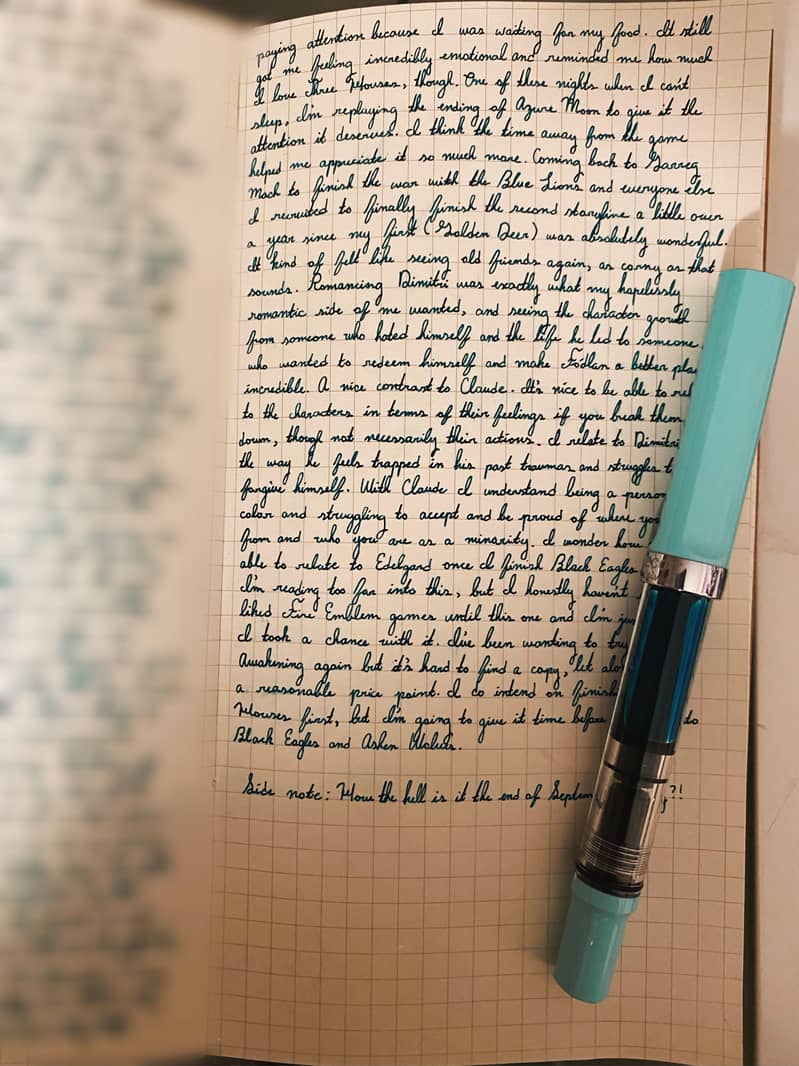 paying attention because I was waiting for my food. It still
got me feeling incredibly emotional and reminded me how much
I love Three Houses, though. One of these nights when I can't
sleep, I'm replaying the ending of Azure Moon to give it the
attention it deserves. I think the time away from the game
helped me appreciate it so much more. Coming back to Garreg
Mach to finish the war with the Blue Lions and everyone else
I recruited to finally finish the second storyline a little over
a year since my first (Golden Deer) was absolutely wonderful.
It kind of felt like seeing old friends again, as corny as that
sounds. Romancing Dimitri was exactly what my hopelessly
romantic side of me wanted, and seeing the character growth
from someone who hated himself and the life he led to someone
who wanted to redeem himself and make Fódlan a better pla
incredible. A nice contrast to Claude. It's nice to be able to rel
to the characters in terms of their feelings if you break them
down, though not necessarily their actions. I relate to Dimitri
the way he feels trapped in his past traumas and struggles t
forgive himself. With Claude I understand being a person
color and struggling to accept and be proud of where yo
from and who you are as a minority. I wonder how
able to relate to Edelgard once I finish Black Eagles
I'm reading too far into this, but I honestly haven't
liked Fire Emblem games until this one and I'm
I took a chance with it. I've been wanting to try
Awakening again but it's hard to find a copy, let alo
a reasonable price point. I do intend on finish
Houses first, but I'm going to give it time before to
Black Eagles and Ashen Wolves.
Side note: How the hell is it the end of Septem y?!